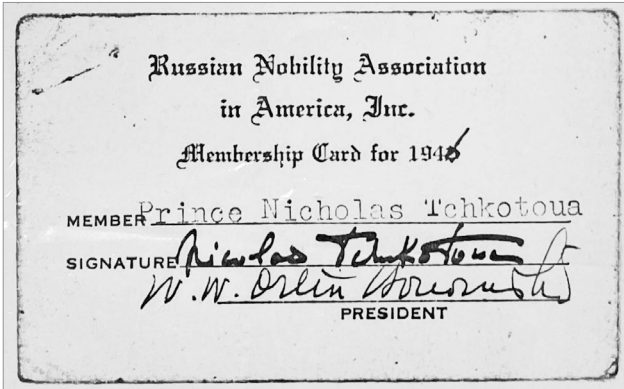 Russian Nobility Association
in America, Inc.
Membership Card for 194
MEMBER Prince Nicholas Tchkotoua
SIGNATURE Nicolas Tchkotoua
W. W. Orlin
PRESIDENT